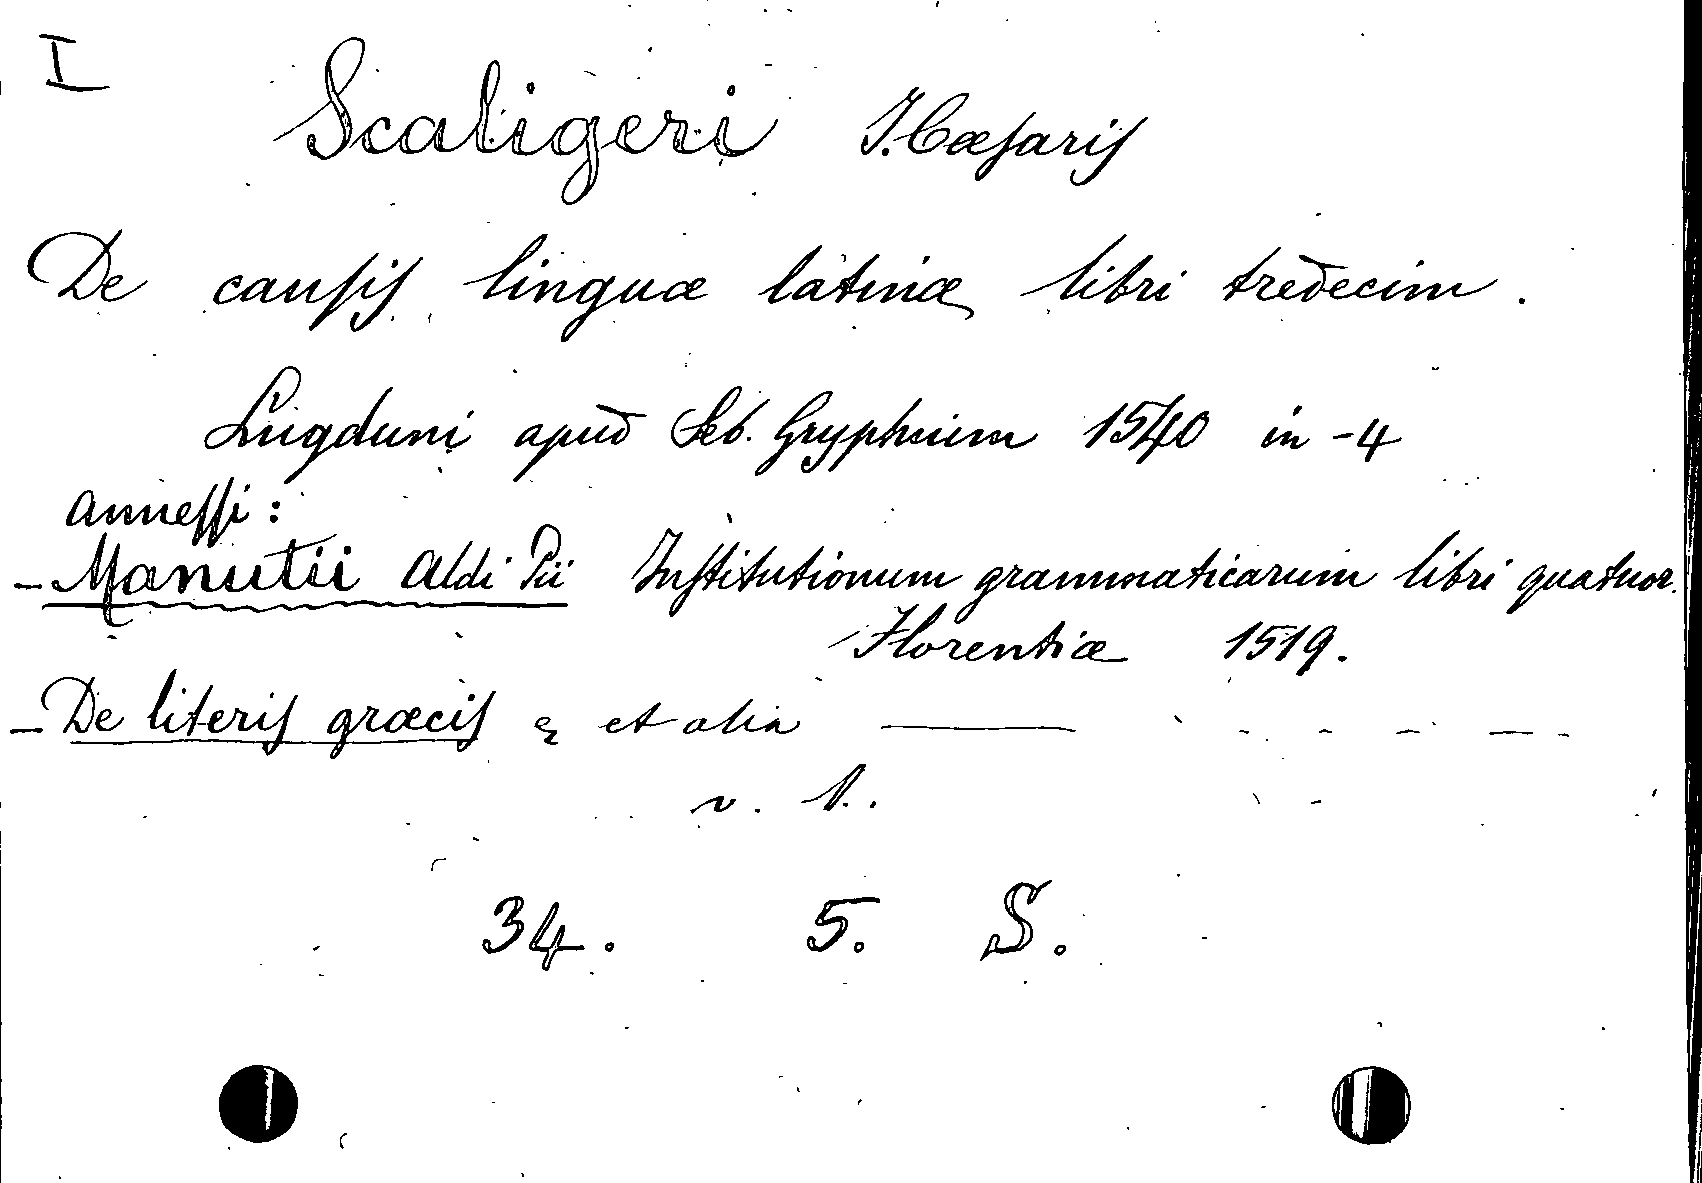 I
Scaligeri J. Cæsaris
De causis linguæ latinæ libri tredecim.
Lugduni apud Seb. Gryphium 1540 in-4
annessi:
- Manutii Aldi Pii Institutionum grammaticarum libri quatuor.
Florentiæ 1519.
- De literis græcis & et alia
v. 1.
34. 5. S.